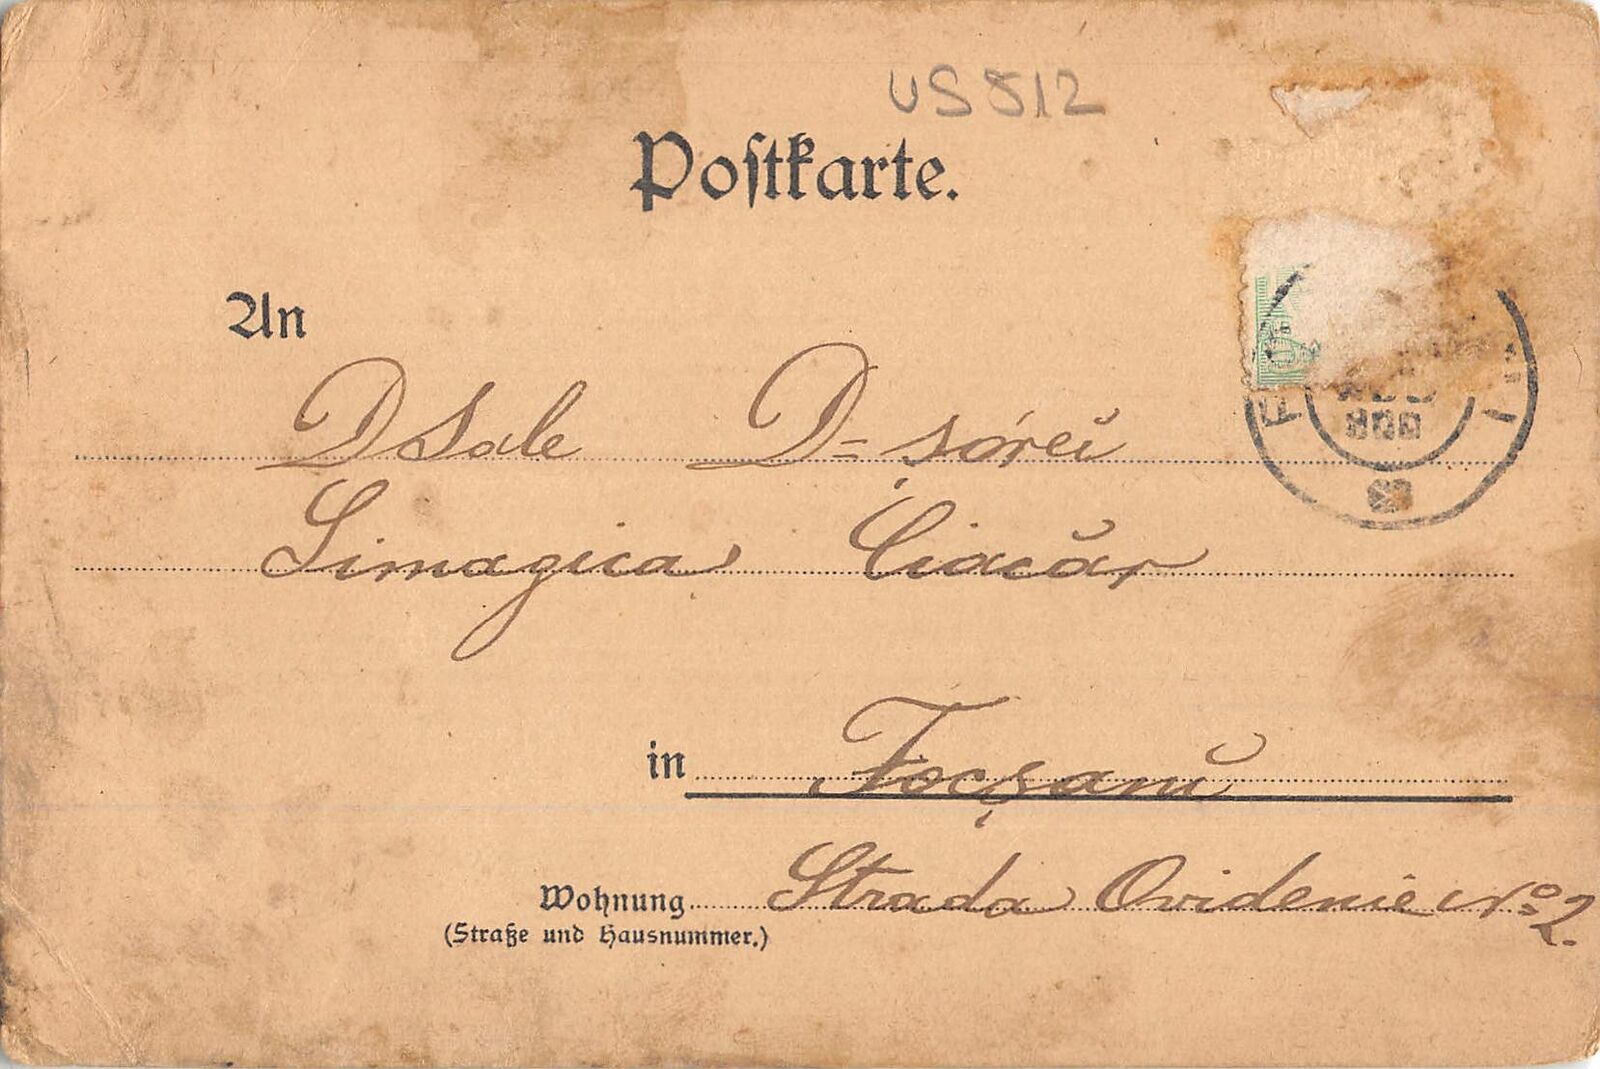 US 512
Postkarte.
An
D Sale D= șórei
Simagica Ciacăr
in Focșanĭ
Wohnung Strada Ovidenie No 2.
(Straße und Hausnummer.)